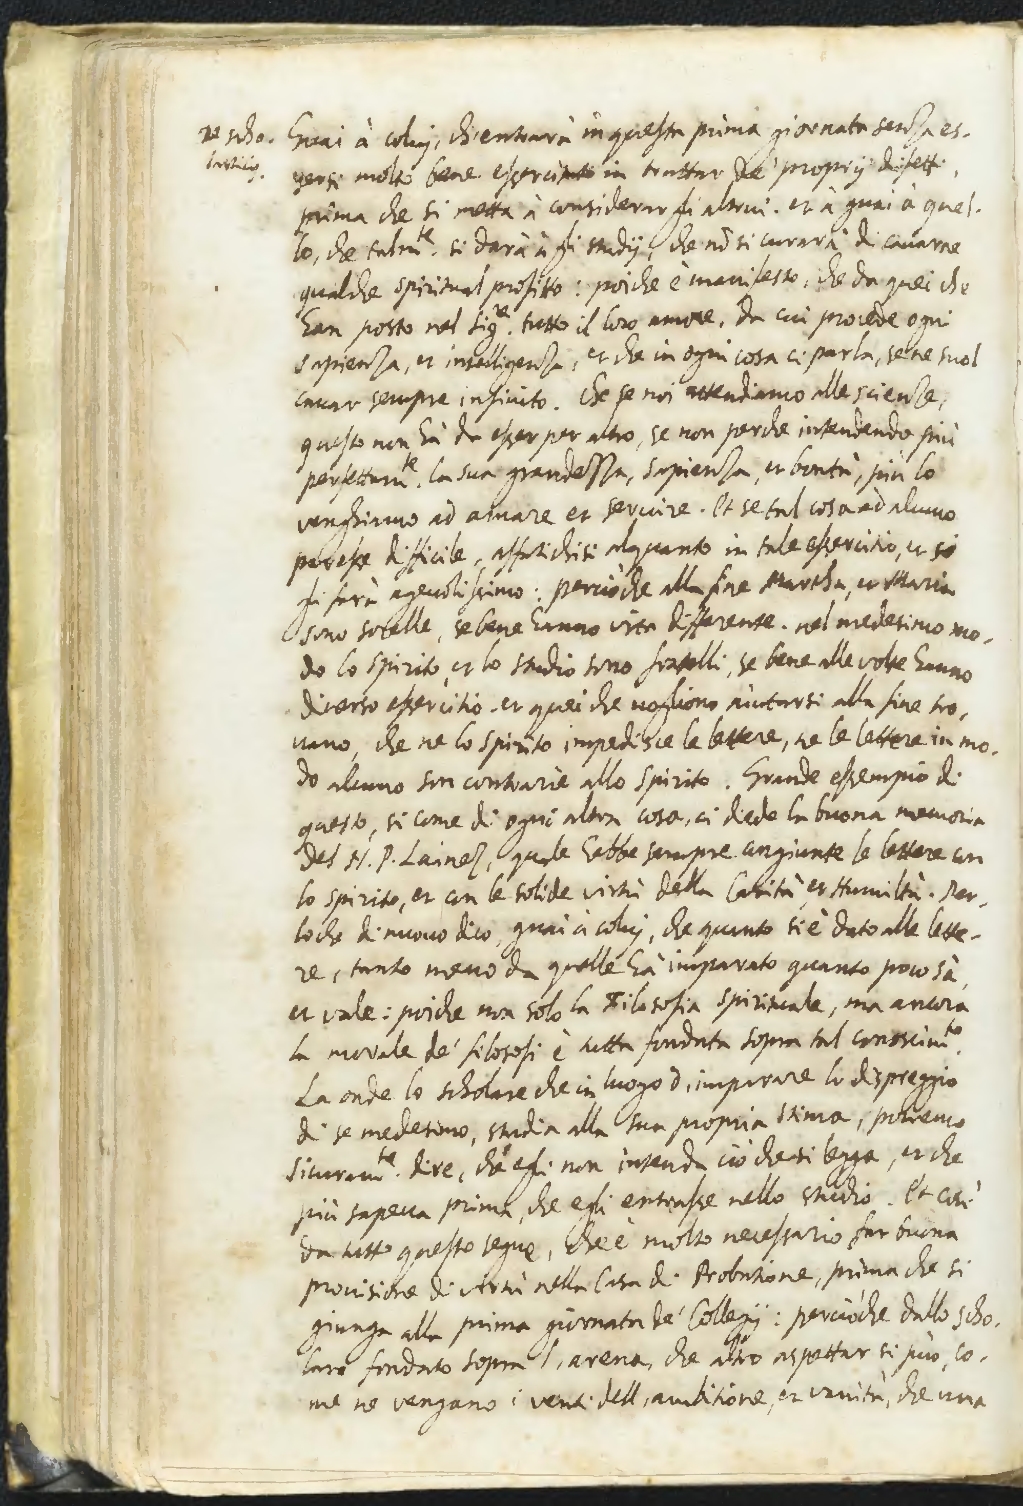 ne scho.
lastico.
Guai à coluj, ch'entrarà in questa prima giornata senza es-
sersi molto bene essercitato in trattar de' proprij difetti,
prima che si metta à considerar gli altrui. et à guai à quel-
lo, che talm.te si darà à gli studij, che nō si curarà di cauarne
qualche spiritual profitto: poiche è manifesto, che da quei che
han posto nel Sig.re tutto il loro amore, da cui procede ogni
sapienza, et intelligenza, et che in ogni cosa ci parla, se ne suol
cauar sempre infinito. Che se noi attendiamo alle scienze,
questo non hà da esser per altro, se non perche intendendo più
perfettam.te la sua grandezza, sapienza, et bontà, più lo
venghiamo ad amare et seruire. Et se tal cosa ad alcuno
paresse difficile, affatichisi alquanto in tale essercitio, et si
gli farà ageuolissimo: percioche alla fine Martha, et Maria
sono sorelle, se bene hanno vita differente. nel medesimo mo-
do lo spirito, et lo studio sono fratelli, se bene alle volte hanno
diuerso essercitio. et quei che uogliono aiutarsi alla fine tro-
uano, che ne lo spirito impedisce le lettere, ne le lettere in mo-
do alcuno son contrarie allo spirito. Grande essempio di
questo, si come di ogni altra cosa, ci diede la buona memoria
del N. P. Lainez, quale hebbe sempre congiunte le lettere con
lo spirito, et con le solide virtù della Carità, et Humiltà. Per-
loche di nuouo dico, guai à coluj, che quanto si è dato alle lette-
re, tanto meno da quelle hà imparato quanto poco sà,
et vale: poiche non solo la Filosofia spirituale, ma ancora
la morale de' filosofi è tutta fondata sopra tal conoscim.to
La onde lo scholare che in luogo d'imparare lo dispreggio
di se medesimo, studia alla sua propria stima, potremo
sicuram.te dire, che egli non intenda ciò che si legga, et che
più sapeua prima, che egli entrasse nello studio. Et così
da tutto questo segue, che è molto necessario far buona
prouisione di virtù nella Casa di Probatione, prima che si
giunga alla prima giornata de' Collegij: percioche dallo scho-
lare fondato sopra l'arena, che altro aspettar si può, co-
me ne vengano i venti dell'ambitione, et vanità, che una